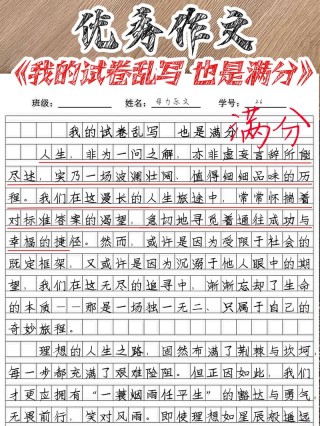 优秀作文
《我的试卷乱写 也是满分》
班级: 姓名: 学号: 26
我的试卷乱写 也是满分
满分
人生,非为一问之解,亦非虚妄言辞所能
尽述,实乃一场波澜壮阔,值得细细品味的历
程。我们在这漫长的人生旅途中,常常怀揣着
对标准答案的渴望,急切地寻觅着通往成功与
幸福的捷径。然而,或许是因为受限于社会的
既定框架,又或许是因为沉溺于他人眼中的期
望,我们在这无尽的追寻中,渐渐忘却了生命
的本质——那是一场独一无二,只属于自己的
奇妙旅程。
理想的人生之路,固然布满了荆棘与坎坷,
每一步都充满了艰难险阻。但正因如此,我们
才更应拥有“一蓑烟雨任平生”的豁达与勇气,
无畏前行,笑对风雨。即使理想如星辰般遥远